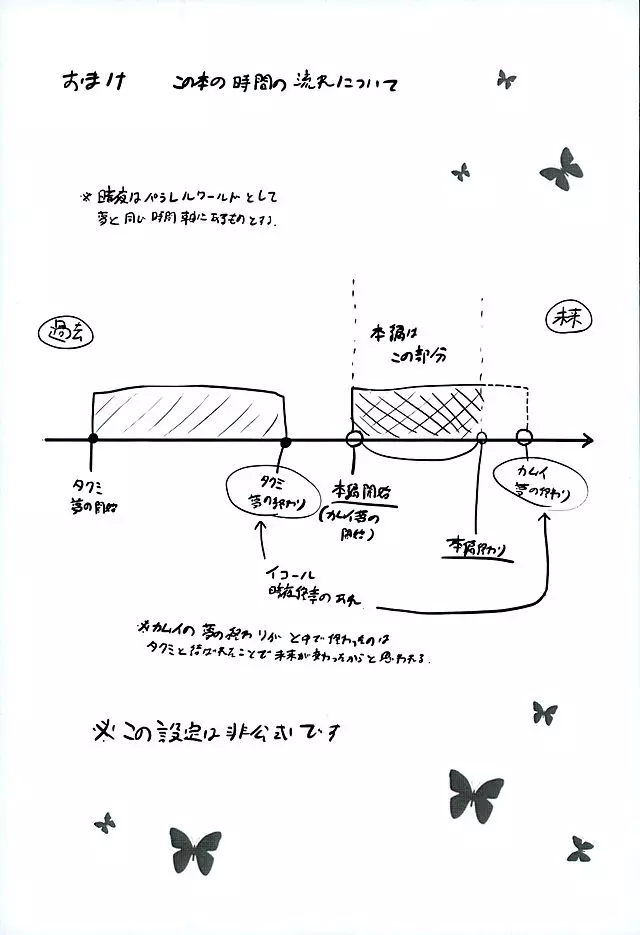 おまけ　この本の時間の流れについて
※ 暗夜はパラレルワールドとして
夢と同じ時間軸にあるものとする.
過去
未来
本編は
この部分
タクミ
夢の開始
タクミ
夢の終わり
本編開始
(カムイ夢の
開始)
本編終わり
カムイ
夢の終わり
イコール
暗夜終章のあれ
※カムイの夢の終わりがと中で終わったのは
タクミと結ばれたことで未来が変わったからと思われる.
※この設定は非公式です